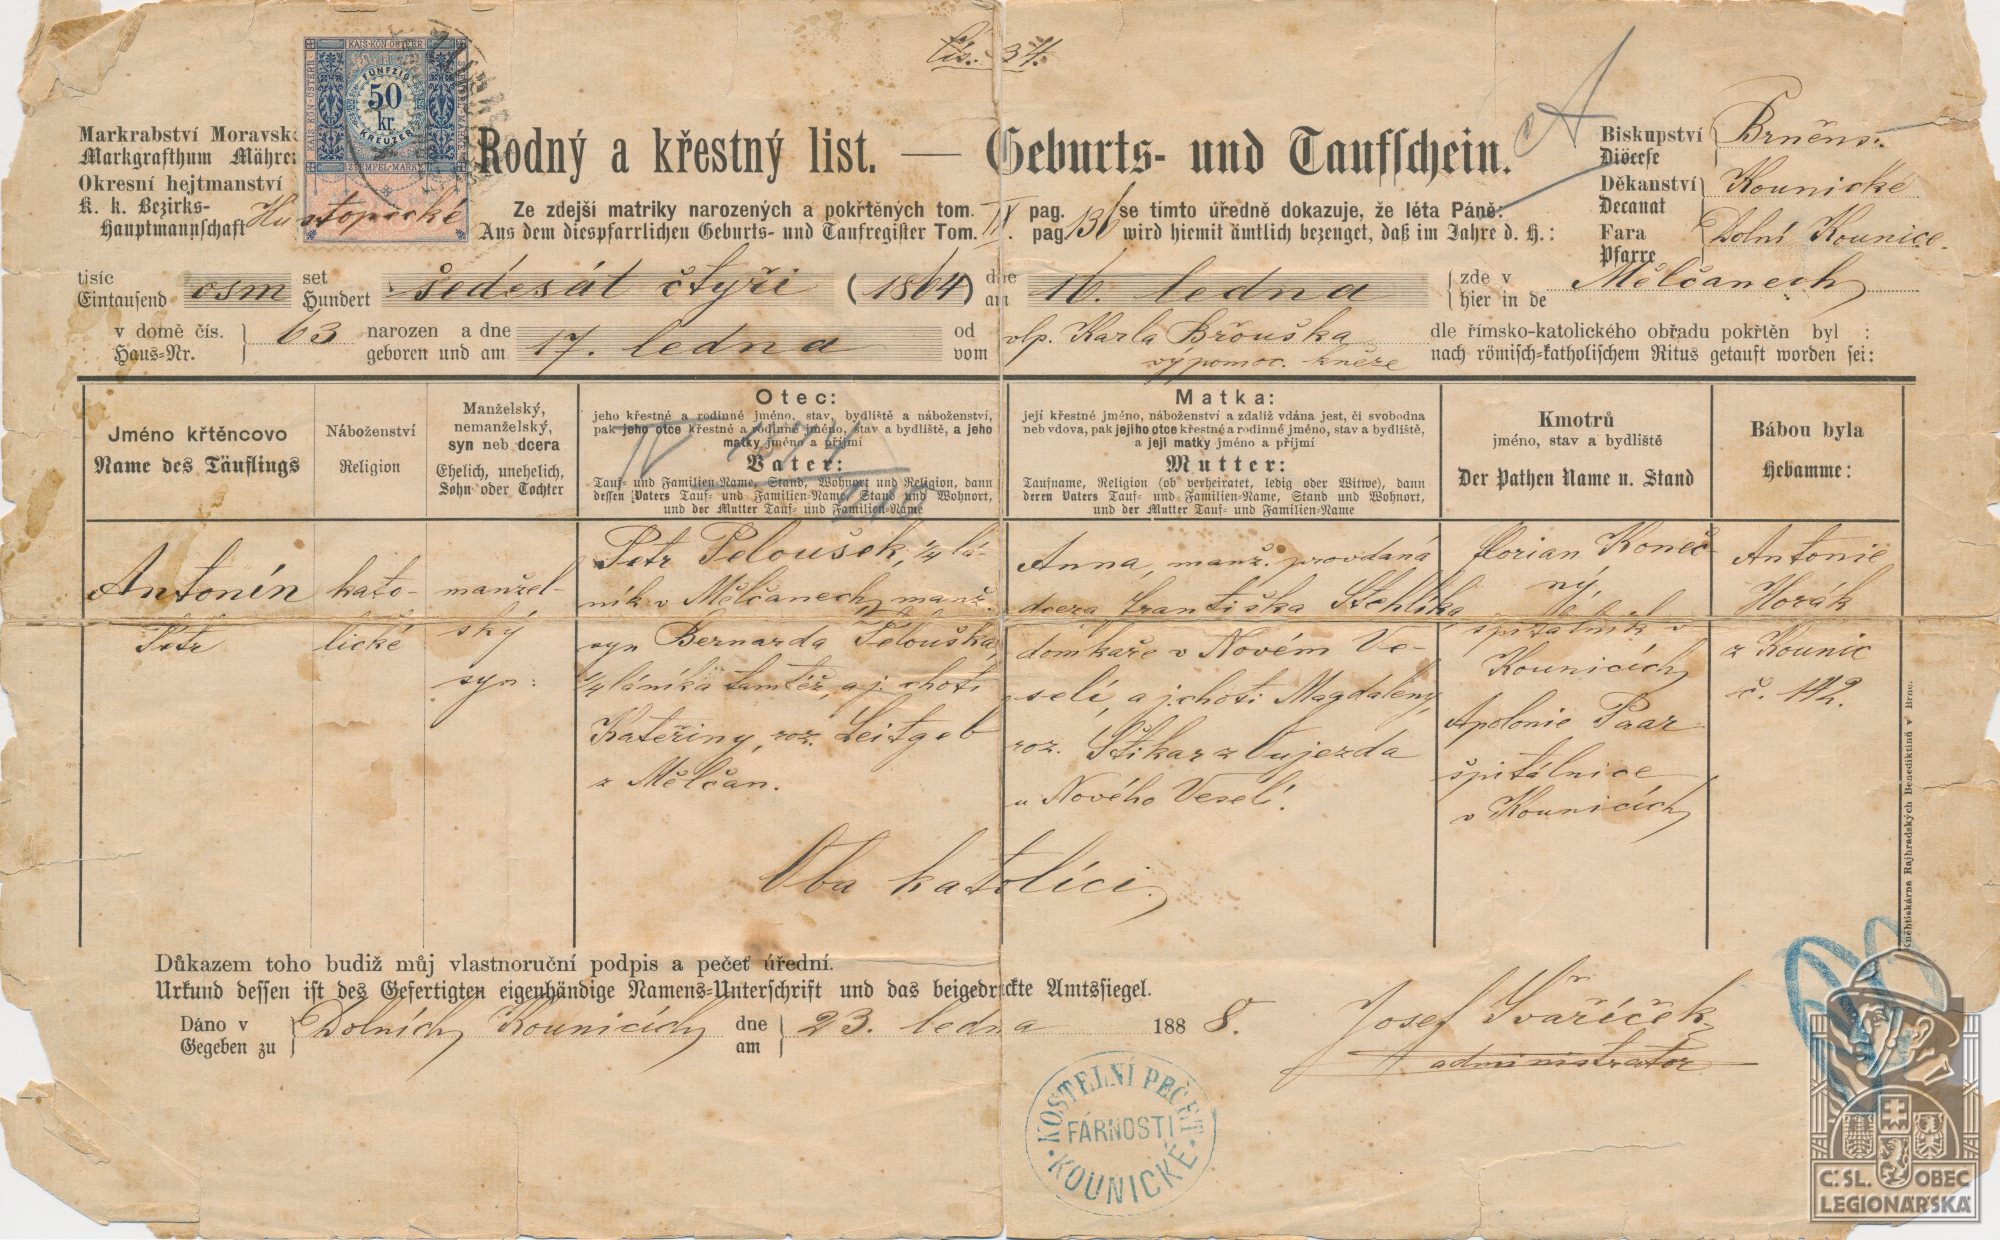 Čís. 34.
KAIS. KÖN. ÖSTERR.
FÜNFZIG
50
kr.
KREUZER
STEMPEL-MARKE
Markrabství Moravsk
Markgrafthum Mähre
Okresní hejtmanství
K. k. Bezirks-
Hauptmannschaft Hustopecké
Rodný a křestný list. — Geburts- und Taufschein.
Ze zdejší matriky narozených a pokřtěných tom. IV pag. 136 se tímto úředně dokazuje, že léta Páně:
Aus dem diespfarrlichen Geburts- und Taufregister Tom. IV. pag. 136 wird hiemit ämtlich bezeuget, daß im Jahre d. H.:
Biskupství Brněns.
Diöcese
Děkanství Kounické
Decanat
Fara Dolní Kounice.
Pfarre
tisíc osm set šedesát čtyři (1864) dne 16. ledna zde v Mělčanech
Eintausend Hundert am hier in de
v domě čís. 63 narozen a dne 17. ledna od vlp. Karla Břouška dle římsko-katolického obřadu pokřtěn byl :
Haus-Nr. geboren und am vom výpomoc. kněze nach römisch-katholischem Ritus getauft worden sei:
Jméno křtěncovo
Name des Täuflings
Náboženství
Religion
Manželský,
nemanželský,
syn neb dcera
Ehelich, unehelich,
Sohn oder Tochter
Otec:
jeho křestné a rodinné jméno, stav, bydliště a náboženství,
pak jeho otce křestné a rodinné jméno, stav a bydliště, a jeho
matky jméno a příjmí
Vater:
Tauf- und Familien-Name, Stand, Wohnort und Religion, dann
dessen Vaters Tauf- und Familien-Name, Stand und Wohnort,
und der Mutter Tauf- und Familien-Name
Matka:
její křestné jméno, náboženství a zdaliž vdána jest, či svobodna
neb vdova, pak jejího otce křestné a rodinné jméno, stav a bydliště,
a její matky jméno a příjmí
Mutter:
Taufname, Religion (ob verheiratet, ledig oder Witwe), dann
deren Vaters Tauf- und Familien-Name, Stand und Wohnort,
und der Mutter Tauf- und Familien-Name
Kmotrů
jméno, stav a bydliště
Der Pathen Name u. Stand
Bábou byla
Hebamme:
Antonín
Petr
kato-
lické
manžel-
ský
syn:
Petr Peloušek, 1/4 lá-
ník v Mělčanech, manž.
syn Bernarda Pelouška,
1/4 láníka tamtéž, a j. choti
Kateřiny, roz. Leitgeb
z Mělčan.
Anna, manž. provdaná
dcera Františka Stehlíka
domkaře v Novém Ve-
selí, a j. choti Magdaleny,
roz. Štikar z Oujezda
u Nového Veselí.
Florian Koneč-
ný
špitálník v
Kounicích
Apolonie Paar
špitálnice
v Kounicích
Antonie
Horák
z Kounic
č. 142.
Oba katolíci.
Důkazem toho budiž můj vlastnoruční podpis a pečeť úřední.
Urkund dessen ist des Gefertigten eigenhändige Namens-Unterschrift und das beigedrückte Amtssiegel.
Dáno v Dolních Kounicích dne 23. ledna 1888.
Gegeben zu am
Josef Svaříček
administrator
KOSTELNÍ PEČEŤ
FÁRNOSTI
KOUNICKÉ
Kněhtiskárna Rajhradských Benediktinů v Brně.
ČSL. OBEC
LEGIONÁŘSKÁ